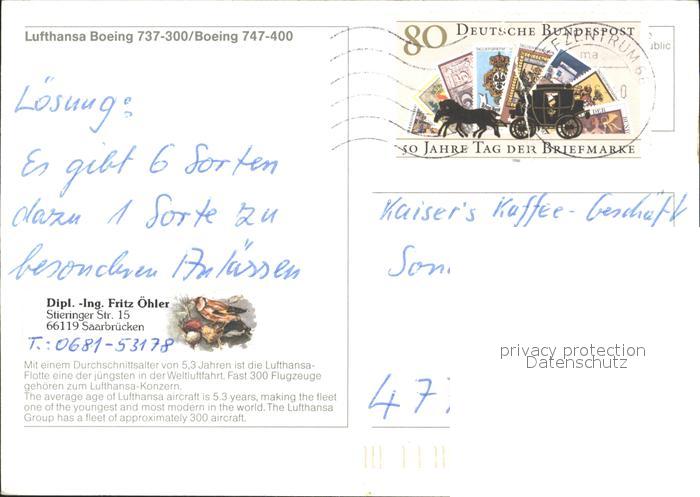 Lufthansa Boeing 737-300/Boeing 747-400
80 DEUTSCHE BUNDESPOST
50 JAHRE TAG DER BRIEFMARKE
Lösung:
Es gibt 6 Sorten
dazu 1 Sorte zu
besonderen Anlässen
Dipl. -Ing. Fritz Öhler
Stieringer Str. 15
66119 Saarbrücken
T.: 0681-53178
Mit einem Durchschnittsalter von 5,3 Jahren ist die Lufthansa-
Flotte eine der jüngsten in der Weltluftfahrt. Fast 300 Flugzeuge
gehören zum Lufthansa-Konzern.
The average age of Lufthansa aircraft is 5.3 years, making the fleet
one of the youngest and most modern in the world. The Lufthansa
Group has a fleet of approximately 300 aircraft.
Kaiser's Kaffee-Geschäft
Son
privacy protection
Datenschutz
477